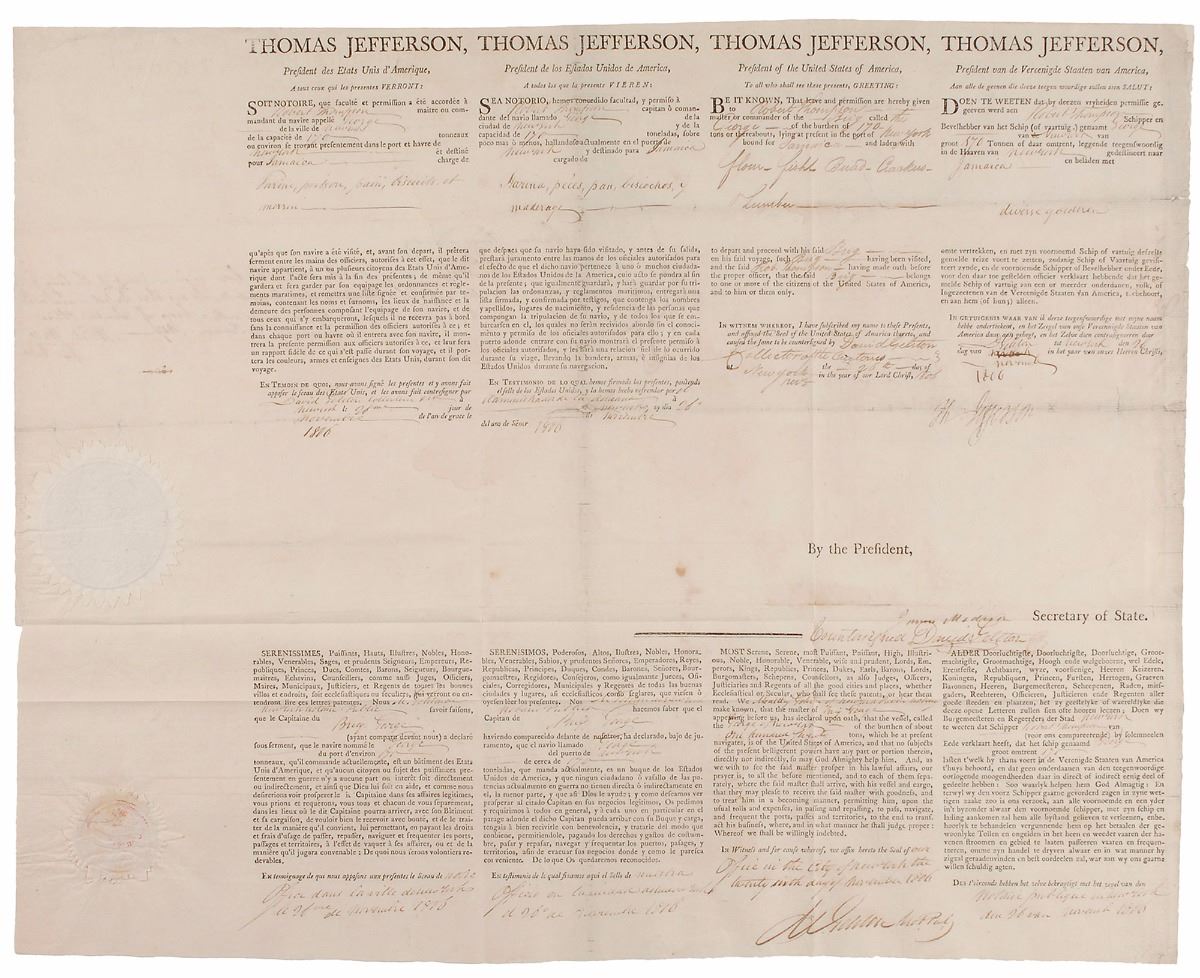 THOMAS JEFFERSON,
President des Etats Unis d'Amerique,
A tous ceux qui les presentes VERRONT:
SOIT NOTOIRE, que faculté et permission a été accordée à
Robert Thompson maitre ou com-
mandant du navire appellé George
de la ville de Newyork
de la capacité de 170 tonneaux
ou environ se trouvant presentement dans le port et havre de
Newyork et destiné
pour Jamaica chargé de
farine, poisson, pain, biscuits, et
merrin
qu'après que son navire a été visité, et, avant son depart, il prêtera
serment entre les mains des officiers, autorisés à cet effet, que le dit
navire appartient, à un ou plusieurs citoyens des Etats Unis d'Ame-
rique dont l'acte sera mis à la fin des presentes; de même qu'il
gardera et fera garder par son équipage les ordonnances et regle-
mens maritimes, et remettra une liste signée et confirmée par te-
moins, contenant les noms et surnoms, les lieux de naissance et la
demeure des personnes composant l'equipage de son navire, et de
tous ceux qui s'y embarqueront, lesquels il ne recevra pas à bord
sans la connaissance et la permission des officiers autorisés à ce; et
dans chaque port ou havre où il entrera avec son navire, il mon-
trera la presente permission aux officiers autorisés à ce, et leur fera
un rapport fidèle de ce qui s'est passé durant son voyage, et il por-
tera les couleurs, armes et enseignes des Etats Unis, durant son dit
voyage.
EN TEMOIN DE QUOI, nous avons signé les presentes et y avons fait
apposer le sceau des Etats Unis, et les avons fait contresigner par
David Gelston à
newyork le 26 me jour de
novembre de l'an de grace le
1806
THOMAS JEFFERSON,
President de los Estados Unidos de America,
A todos los que la presente VIEREN:
SEA NOTORIO, hemos concedido facultad, y permiso à
Robert Thompson capitan ò coman-
dante del navio llamado George
ciudad de newyork y de la
capacidad de 170 toneladas, sobre
poco mas ò menos, hallandose actualmente en el puerto de
newyork y destinado para Jamaica
cargado de
harina, péces, pan, biscochos, y
maderage
que despues que su navio haya sido visitado, y antes de su salida,
prestará juramento entre las manos de los oficiales autorizados para
el efecto de que el dicho navio pertenece à uno ò muchos ciudada-
nos de los Estados Unidos de America, cuio acto se pondra al fin
de la presente; que igualmente guardará, y hará guardar por su tri-
pulacion las ordenanzas, y reglamentos maritimos, y entregará una
lista firmada, y confirmada por testigos, que contenga los nombres
y apellidos, lugares de nacimiento, y residencias de las personas que
compongan la tripulacion de su navio, y de todos los que se em-
barcasen en el, los quales no seran recividos abordo sin el conoci-
miento y permiso de los oficiales autorizados para ello; y en cada
puerto adonde entrare con su navio mostrará el presente permiso à
los oficiales autorizados, y les hará una relacion fiel de lo ocurrido
durante su viage, llevando la bandera, armas, e insignias de los
Estados Unidos durante su navegacion.
EN TESTIMONIO DE LO QUAL hemos firmado las presentes, poniendo
el sello de los Estados Unidos, y la hemos hecho refrendar por el
à
newyork el dia 26
de novembre
del ano de Señor 1806
THOMAS JEFFERSON,
President of the United States of America,
To all who shall see these presents, GREETING:
BE IT KNOWN, That leave and permission are hereby given
to Robert Thompson
master or commander of the Brig called the
George of the burthen of 170
tons or thereabouts, lying at present in the port of Newyork
bound for Jamaica and laden with
flour - fish - Bread - Crackers -
& Lumber
to depart and proceed with his said Brig
on his said voyage, such Brig having been visited,
and the said Robt Thompson having made oath before
the proper officer, that the said Brig belongs
to one or more of the citizens of the United States of America,
and to him or them only.
IN WITNESS WHEREOF, I have subscribed my name to these Presents,
and affixed the Seal of the United States of America thereto, and
caused the same to be countersigned by David Gelston
Collector of the Customs
at Newyork the 26th day of
Novr in the year of our Lord Christ, 1806
THOMAS JEFFERSON,
President van de Vereenigde Staaten van America,
Aan alle de geenen die deeze tegenwoordige zullen zien SALUT:
DOEN TE WEETEN dat by derzen vryheiden permissie ge-
geeven werd aen Robert Thompson
Schipper en
Bevelhebber van het Schip (of vaartuig) genaamd George
van Newyork van
groot 170 Tonnen of daar omtrent, leggende tegenswoordig
in de Haaven van Newyork gedestineert naar
Jamaica en beladen met
diverse goederen
omte vertrekken, en met zyn voornoemd Schip of vaartuig desselfs
gemelde reize voort te zetten, zodanig Schip of Vaartuig gevisi-
teert zynde, en de voornoemde Schipper of Bevelhebber onder Eede,
voor den daar toe gestelden officier verklaart hebbende dat het ge-
melde Schip of vaartuig aan een ar meerder onderdanen, volk, of
Ingezeetenen van de Vereenigde Staaten Van America, t.ebehoort,
en aan hem (of hun;) alleen.
IN GETUIGENIS WAAR van ik deeze tegenswoordige met myne naam
hebbe ondertekent, en het Zeegel van onze Vereenigde Staaten van
America daar aan gehegt, en het Zelve doen contrasigneren door
te newyork den 26
dag van novemb in het jaar van onzes Heeren Christi,
1806
Th Jefferson
By the President,
James Madison Secretary of State.
Countersigned David Gelston
SERENISSIMES, Puissants, Hauts, Illustres, Nobles, Hono-
rables, Venerables, Sages, et prudents Seigneurs, Empereurs, Re-
publiques, Princes, Ducs, Comtes, Barons, Seigneurs, Bourgue-
maitres, Echevins, Counseillers, comme aussi Juges, Officiers,
Maires, Municipaux, Justiciers, et Regents de toutes les bonnes
villes et endroits, soit ecclesiastiques ou séculiers, qui verront ou en-
tendront lire ces lettres patentes. Nous
notaire Public savoir faisons,
que le Capitaine du
Brick George
(ayant comparu devant nous) a déclaré
sous serment, que le navire nommé le George
du port d'environ 170
tonneaux, qu'il commande actuellement, est un bâtiment des Etats
Unis d'Amérique, et qu'aucun citoyen ou sujet des puissances pre-
sentement en guerre n'y a aucune part ou interêt soit directement
ou indirectement, et ainsi que Dieu lui soit en aide, et comme nous
desirerions voir prospérer le it. Capitaine dans ses affaires légitimes,
vous prions et requérons, vous tous et chacun de vous separement,
dans les lieux où le dit Capitaine pourra arriver, avec son Bâtiment
et sa cargaison, de vouloir bien le recevoir avec bonté, et de le trai-
ter de la manière qu'il convient, lui permettant, en payant les droits
et frais d'usage de passer, repasser, naviguer et frequenter les ports,
passages et territoires, à l'effet de vaquer à ses affaires, ou et de la
manière qu'il jugera convenable; De quoi nous serons volontiers re-
devables.
En temoignage de quoi nous apposons aux presentes le sceau de notre
Office dans la ville de newyork
le 26me de Novembre 1806
SERENISIMOS, Poderosos, Altos, Ilustres, Nobles, Hono-
rables, Venerables, Sabios, y prudentes Señores, Emperadores, Reyes,
Republicas, Principes, Duques, Condes, Barones, Señores, Burgo-
maestres, Regidores, Consejeros, como igualmente Jueces, Ofi-
ciales, Corregidores, Municipales, y Regentes de todas las buenas
ciudades y lugares, asi eclesiasticos como seglares, que viesen ò
oyesen leer los presentes. Nos
hacemos saber que el
Capitan de
Brick George
haviendo comparecido delante de nosotros, ha declarado, bajo de ju-
ramento, que el navio llamado George
del puerto de newyork
de cerca de 170
tonneladas, que manda actualmente, es un buque de los Estados
Unidos de America, y que ningun ciudadano ò vasallo de las po-
tencias actualmente en guerra no tienen directa ò indirectamente en
el, la menor parte, y que asi Dios le ayude; y como deseamos ver
prosperar al citado Capitan en sus negocios legitimos, Os pedimos
y requirimos à todos en general, y à cada uno en particular en el
parage adonde el dicho Capitan pueda arribar con su Buque y carga,
tengais à bien recivirle con benevolencia, y tratarle del modo que
conviene, permitiendole, pagando los derechos y gastos de costum-
bre, pasar y repasar, navegar y frequentar los puertos, pasages, y
territorios, afin de evacuar sus negocios donde y como le parezca
conveniente. De lo que Os quedaremos reconocidos.
En testimonio de lo qual firmamos aqui el sello de nuestra
el 26 de Novembre 1806
MOST Serene, Serene, most Puissant, Puissant, High, Illustri-
ous, Noble, Honorable, Venerable, wise and prudent, Lords, Em-
perors, Kings, Republics, Princes, Dukes, Earls, Barons, Lords,
Burgomasters, Schepens, Counsellors, as also Judges, Officers,
Justiciaries and Regents of all the good cities and places, whether
Ecclesiastical or Secular, who shall see these patents, or hear them
read. We
make known, that the master of Brig George
appearing before us, has declared upon oath, that the vessel, called
the George of Newyork of the burthen of about
one hundred & seventy tons, which he at present
navigates, is of the United States of America, and that no subjects
of the present belligerent powers have any part or portion therein,
directly nor indirectly, so may God Almighty help him. And, as
we wish to see the said master prosper in his lawful affairs, our
prayer is, to all the before mentioned, and to each of them sepa-
rately, where the said master shall arrive, with his vessel and cargo,
that they may please to receive the said master with goodness, and
to treat him in a becoming manner, permitting him, upon the
usual tolls and expences, in passing and repassing, to pass, navigate,
and frequent the ports, passes and territories, to the end to trans-
act his business, where, and in what manner he shall judge proper:
Whereof we shall be willingly indebted.
In Witness and for cause whereof, we affix hereto the Seal of our
Office in the City of newyork the
twenty sixth day of November 1806
Not Pub
ALDER Doorluchtigste, Doorluchtigste, Doorluchtige, Groot-
machtigste, Grootmachtige, Hoogh ende welgeboorne, wel Edele,
Erentfeste, Achtbaare, wyze, voorsienige, Heeren Keizeren,
Koningen, Republiquen, Princen, Furlten, Hertogen, Graeven,
Baronnen, Heeren, Burgemeesteren, Schreepenen, Raden, mits-
gaders, Rechteren, Officieren, Justicieren ende Regenten aller
goede Steeden en plaatsen, het zy geestelyke of waereltlyke die
deeze opene Letteren zullen sien ofte hooren leezen; Doen wy
Burgemeesteren en Regeerders der Stad newyork
te weeten dat Schipper Robert Thompson van
(voor ons compareerende) by solemneelen
Eede verklaart heeft, dat het schip genaamd George
groot omtrent 170
lasten t'welk by thans voert in de Vereenigde Staaten van America
t'huys behoord, en dat geen onderdaanen van den teegenwoordige
oorlogende moogendheden daar in direct of indirect eenig deel of
gedeelte hebben: Soo waarlyk helpen hem God Almagtig: En
terwyl wy den voorz Schipper gaerne gevorderd zagen in zyne wet-
tigen zaake zoo is ons verzoek, aan alle voornoemde en een yder
in't byzonder alwaar den voornoemde schipper, met zyn schip en
lading aankomen zal hem alle bystand gelieven te verleenen, enbe-
hoorlyk te behandelen vergunnende hem op het betalen der ge-
woonlyke Tollen en ongelden in het heen en weeder vaaren der ha-
venen stroomen en gebied te laten passeeren vaaren en frequen-
teeren, omme zyn handel te dryven alwaar en in wat manner hy
zigzal geraadenvinden en best oordeelen zal, war aan wy ons gaerne
willen schuldig agten.
Des t'oirconde hebben het zelve bekragtigt met het zegel van den
Notaire publique in newyork
den 26 van novemb 1806